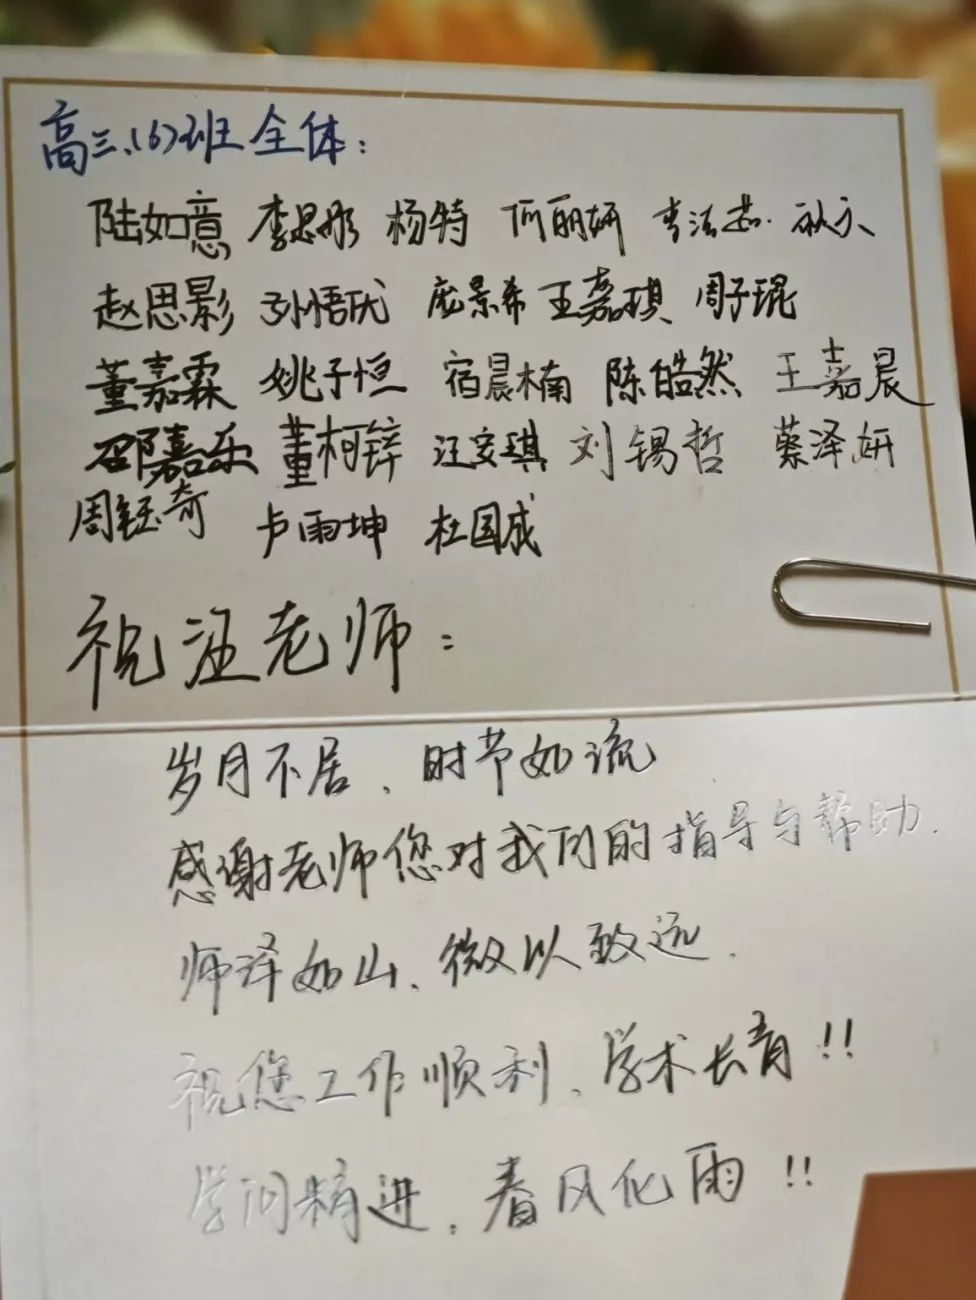 高三(6)班全体:
陆如意 李思彤 杨特 何丽妍 李洁茹
赵思影 孙悟忧 庞景希 王嘉琪 周子琨
董嘉霖 姚子恒 宿晨楠 陈皓然 王嘉晨
邵嘉乐 董柯锌 汪安琪 刘锡哲 蔡泽妍
周钰奇 卢雨坤 杜国成
祝汪老师:
岁月不居、时节如流
感谢老师您对我们的指导与帮助.
师泽如山、微以致远.
祝您工作顺利、学术长青!!
学问精进、春风化雨!!